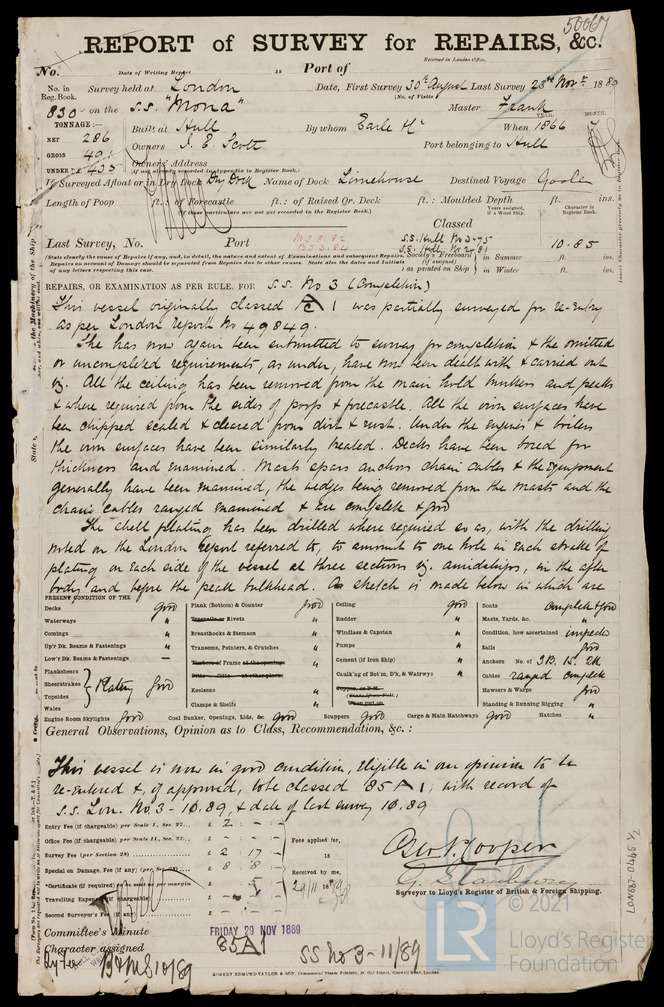 50067
REPORT of SURVEY for REPAIRS, &c.
Received in London Office.
No. Date of Writing Report 18 Port of
No. in Reg. Book. Survey held at London Date, First Survey 30th August Last Survey 28th Novr 1889
(No. of Visits)
830 on the S.S. "Mona" Master Frank
TONNAGE:— YEAR. MONTH.
NET 286 Built at Hull By whom Earle When 1866
GROSS Owners Port belonging to Hull
UNDER 435 Owners' Address
(if not already recorded in Appendix to Register Book.)
If Surveyed Afloat or in Dry Dock Dry Dock Name of Dock Limehouse Destined Voyage Goole
Length of Poop ft.: of Forecastle ft.: of Raised Qr. Deck ft.: Moulded Depth ft. ins.
(If these particulars are not yet recorded in the Register Book.)
Classed
Character in Register Book.
Last Survey, No. Port S.S. Hull No 3-75
S.S. Hull No 2/81
10.85
Society's Freeboard (if assigned) as painted on Ship in Summer ft. ins.
in Winter ft. ins.
REPAIRS, OR EXAMINATION AS PER RULE, FOR S.S. No 3 (Completion)
This vessel originally classed A 1 was partially surveyed for re-entry
as per London report No 49849.
She has now again been submitted to survey for completion & the omitted
or uncompleted requirements, as under, have now been dealt with & carried out
viz. All the ceiling has been removed from the main hold bunkers and peaks
& where required from the sides of poop & forecastle. All the iron surfaces have
been chipped scaled & cleared from dirt & rust. Under the engines & boilers
the iron surfaces have been similarly treated. Decks have been bored for
thickness and examined. Masts spars anchors chain cables & the equipment
generally have been examined, the wedges being removed from the masts and the
chain cables ranged examined & are complete & good
The shell plating has been drilled where required so as, with the drilling
noted on the London report referred to, to amount to one hole in each strake of
plating on each side of the vessel at three sections viz. amidships, in the after
body and before the peak bulkhead. A sketch is made below in which are
PRESENT CONDITION OF THE
Decks good Flank (Bottom) & Counter good Ceiling good Boats complete & good
Waterways " Treenails or Rivets " Rudder " Masts, Yards, &c. "
Comings " Breasthooks & Stemson " Windlass & Capstan " Condition, how ascertained inspected
Up'r Dk. Beams & Fastenings " Transoms, Pointers, & Crutches " Pumps " Sails good
Low'r Dk. Beams & Fastenings — Timbers of Frame at the openings " Cement (if Iron Ship) " Anchors No. of 3B. 1S. 2K
Planksheers Caulking of Bot'm, D'k, & Watrwys " Cables ranged complete
Sheerstrakes Plating good Keelsons " Hawsers & Warps good
Topsides Clamps & Shelfs " Standing & Running Rigging "
Wales
Engine Room Skylights good Coal Bunker, Openings, Lids, &c good Scuppers good Cargo & Main Hatchways good Hatches "
General Observations, Opinion as to Class, Recommendation, &c. :
This vessel is now in good condition, eligible in our opinion to be
re-entered &, if approved, to be classed 85 A 1, with record of
S.S. Lon. No. 3 - 10.89, & date of last survey 10.89
Entry Fee (if chargeable) per Scale I., Sec. 27 £ 2 - - Fees applied for,
Office Fee (if chargeable) per Scale II., Sec. 27 £ - -
Survey Fee (per Section 28) £ 2 17 - 18
Special on Damage, Fee (if any) £ 8 8 Received by me,
*Certificate (if required) as per margin 5
Travelling Expenses (if chargeable)
Second Surveyor's Fee
Geo. N. Cooper
G. Stanbury
Surveyor to Lloyd's Register of British & Foreign Shipping.
Committee's Minute FRIDAY 29 NOV 1889
Character assigned 85A1 SS No 3-11/89
B&MS 10/89
ROBERT EDMUND TAYLOR & SON, Commercial Steam Printers
LON687-0445 1/2
© 2021
LR
Lloyd's Register
Foundation